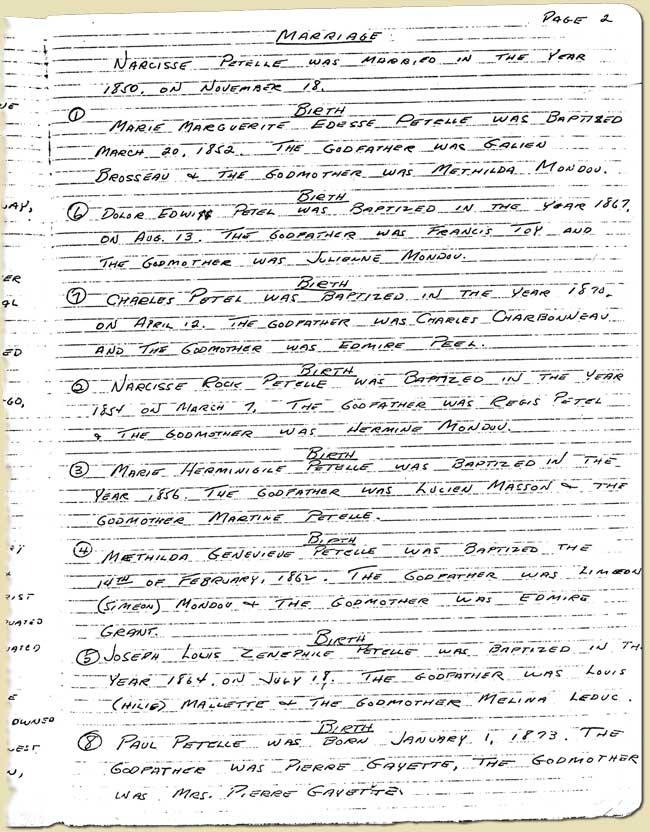 PAGE 2
MARRIAGE
NARCISSE PETELLE WAS MARRIED IN THE YEAR
1850, ON NOVEMBER 18.
BIRTH
① MARIE MARGUERITE EDESSE PETELLE WAS BAPTIZED
MARCH 20, 1852. THE GODFATHER WAS GALIEN
BROSSEAU & THE GODMOTHER WAS METHILDA MONDOU.
BIRTH
⑥ DOLOR EDWI PETEL WAS BAPTIZED IN THE YEAR 1867,
ON AUG. 13. THE GODFATHER WAS FRANCIS TOY AND
THE GODMOTHER WAS JULIENNE MONDOU.
BIRTH
⑦ CHARLES PETEL WAS BAPTIZED IN THE YEAR 1870,
ON APRIL 12. THE GODFATHER WAS CHARLES CHARBONNEAU
AND THE GODMOTHER WAS EDMIRE PEEL.
BIRTH
② NARCISSE ROCK PETELLE WAS BAPTIZED IN THE YEAR
1854 ON MARCH 7, THE GODFATHER WAS REGIS PETEL
& THE GODMOTHER WAS HERMINE MONDOU.
BIRTH
③ MARIE HERMINIGILE PETELLE WAS BAPTIZED IN THE
YEAR 1856. THE GODFATHER WAS LUCIEN MASSON & THE
GODMOTHER MARTINE PETELLE.
BIRTH
④ METHILDA GENEVIEVE PETELLE WAS BAPTIZED THE
14TH OF FEBRUARY, 1862. THE GODFATHER WAS LIMEON
(SIMEON) MONDOU & THE GODMOTHER WAS EDMIRE
GRANT.
BIRTH
⑤ JOSEPH LOUIS ZENEPHILE PETELLE WAS BAPTIZED IN TH
YEAR 1864, ON JULY 18. THE GODFATHER WAS LOUIS
(HILIE) MALLETTE & THE GODMOTHER MELINA LEDUC.
BIRTH
⑧ PAUL PETELLE WAS BORN JANUARY 1, 1873. THE
GODFATHER WAS PIERRE GAYETTE, THE GODMOTHER
WAS MRS. PIERRE GAYETTE.